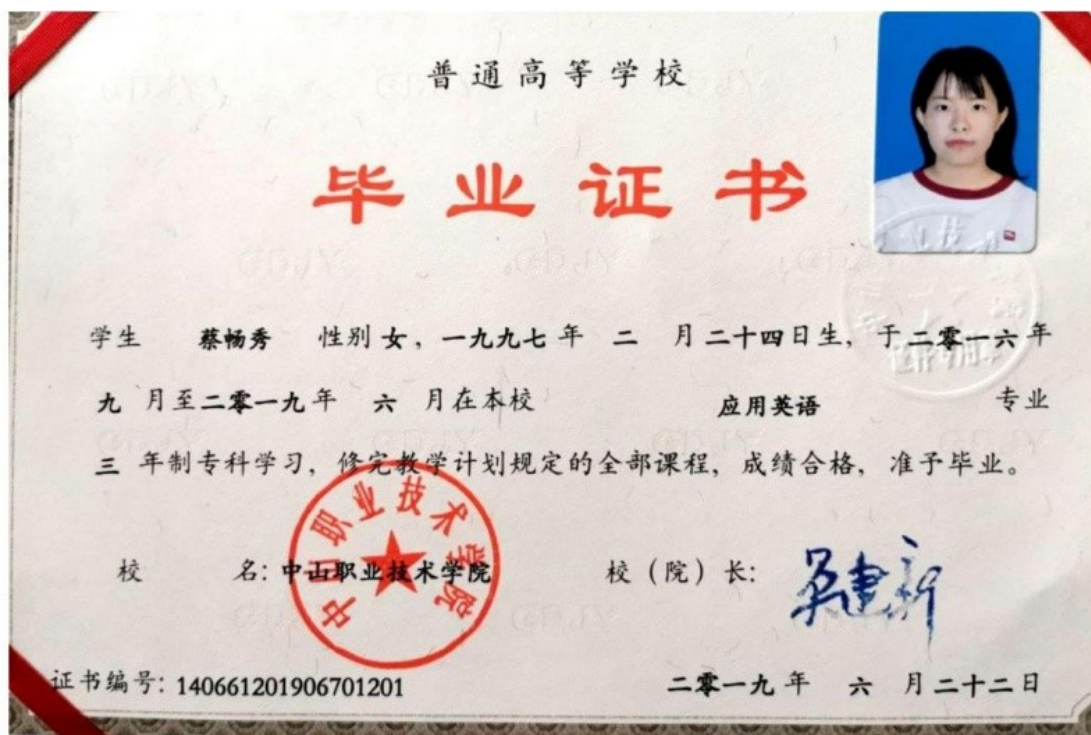 普通高等学校
毕业证书
学生 蔡畅秀 性别女，一九九七年 二 月二十四日生，于二零一六年
九 月至二零一九年 六 月在本校 应用英语 专业
三 年制专科学习，修完教学计划规定的全部课程，成绩合格，准予毕业。
校 名：中山职业技术学院 校（院）长：吴建新
中山职业技术学院
证书编号：140661201906701201 二零一九年 六 月二十二日